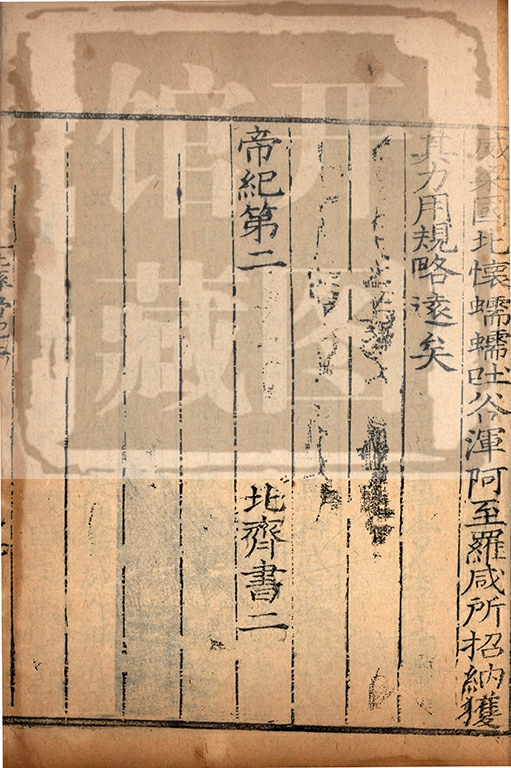 威梁國北懷蠕蠕吐谷渾阿至羅咸所招納獲
其力用規略遠矣
帝紀第二 北齊書二
开图
馆藏